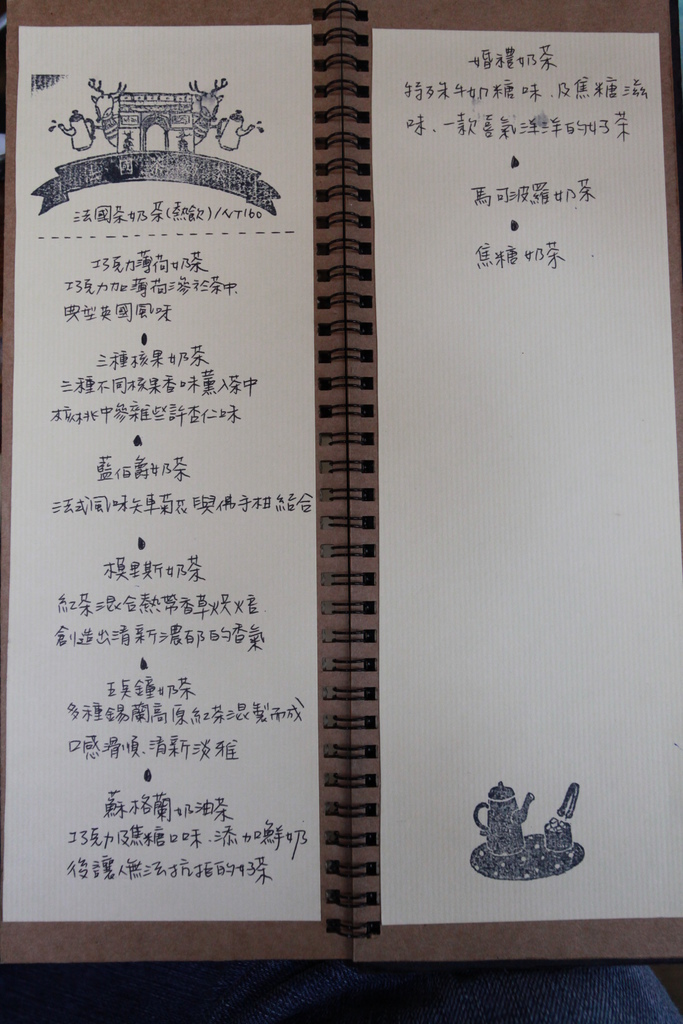 法國茶奶茶(熱飲)/NT160
巧克力薄荷奶茶
巧克力加薄荷滲於茶中
典型英國風味
三種核果奶茶
三種不同核果香味薰入茶中
核桃中參雜些許杏仁味
藍伯爵奶茶
法式風味矢車菊花與佛手柑結合
模里斯奶茶
紅茶混合熱帶香草烘焙
創造出清新濃郁的香氣
五點鐘奶茶
多種錫蘭高原紅茶混製而成
口感滑順、清新淡雅
蘇格蘭奶油茶
巧克力及焦糖口味、添加鮮奶
後讓人無法抗拒的好茶
婚禮奶茶
特殊牛奶糖味、及焦糖滋
味、一款喜氣洋洋的好茶
馬可波羅奶茶
焦糖奶茶